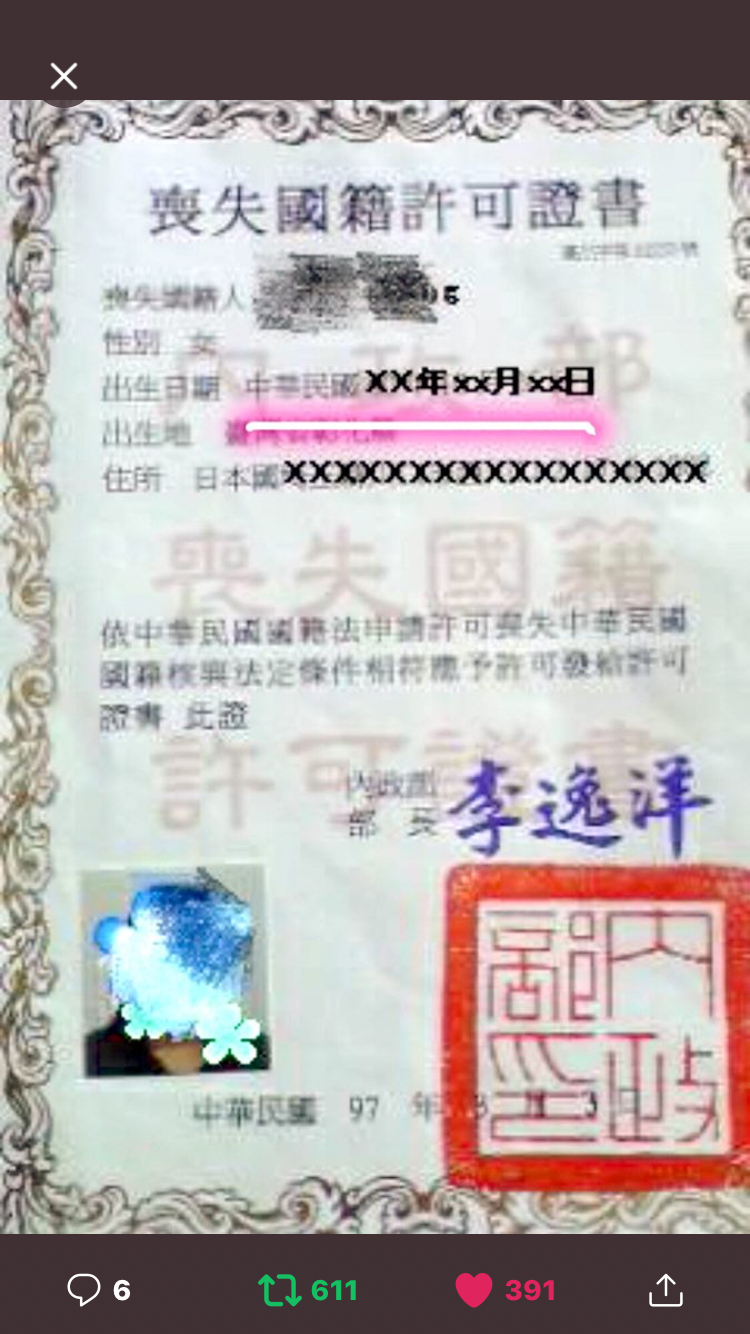 喪失國籍許可證書
喪失國籍人
性別 女
出生日期 中華民國XX年xx月xx日
出生地
住所 日本國XXXXXXXXXXXXXXXXX
內政部
喪失國籍
許可證書
依中華民國國籍法申請許可喪失中華民國
國籍核與法定條件相符應予許可發給許可
證書 此證
內政部
部 長 李逸洋
內政部印
中華民國 97 年 3 月 3 日
6 611 391